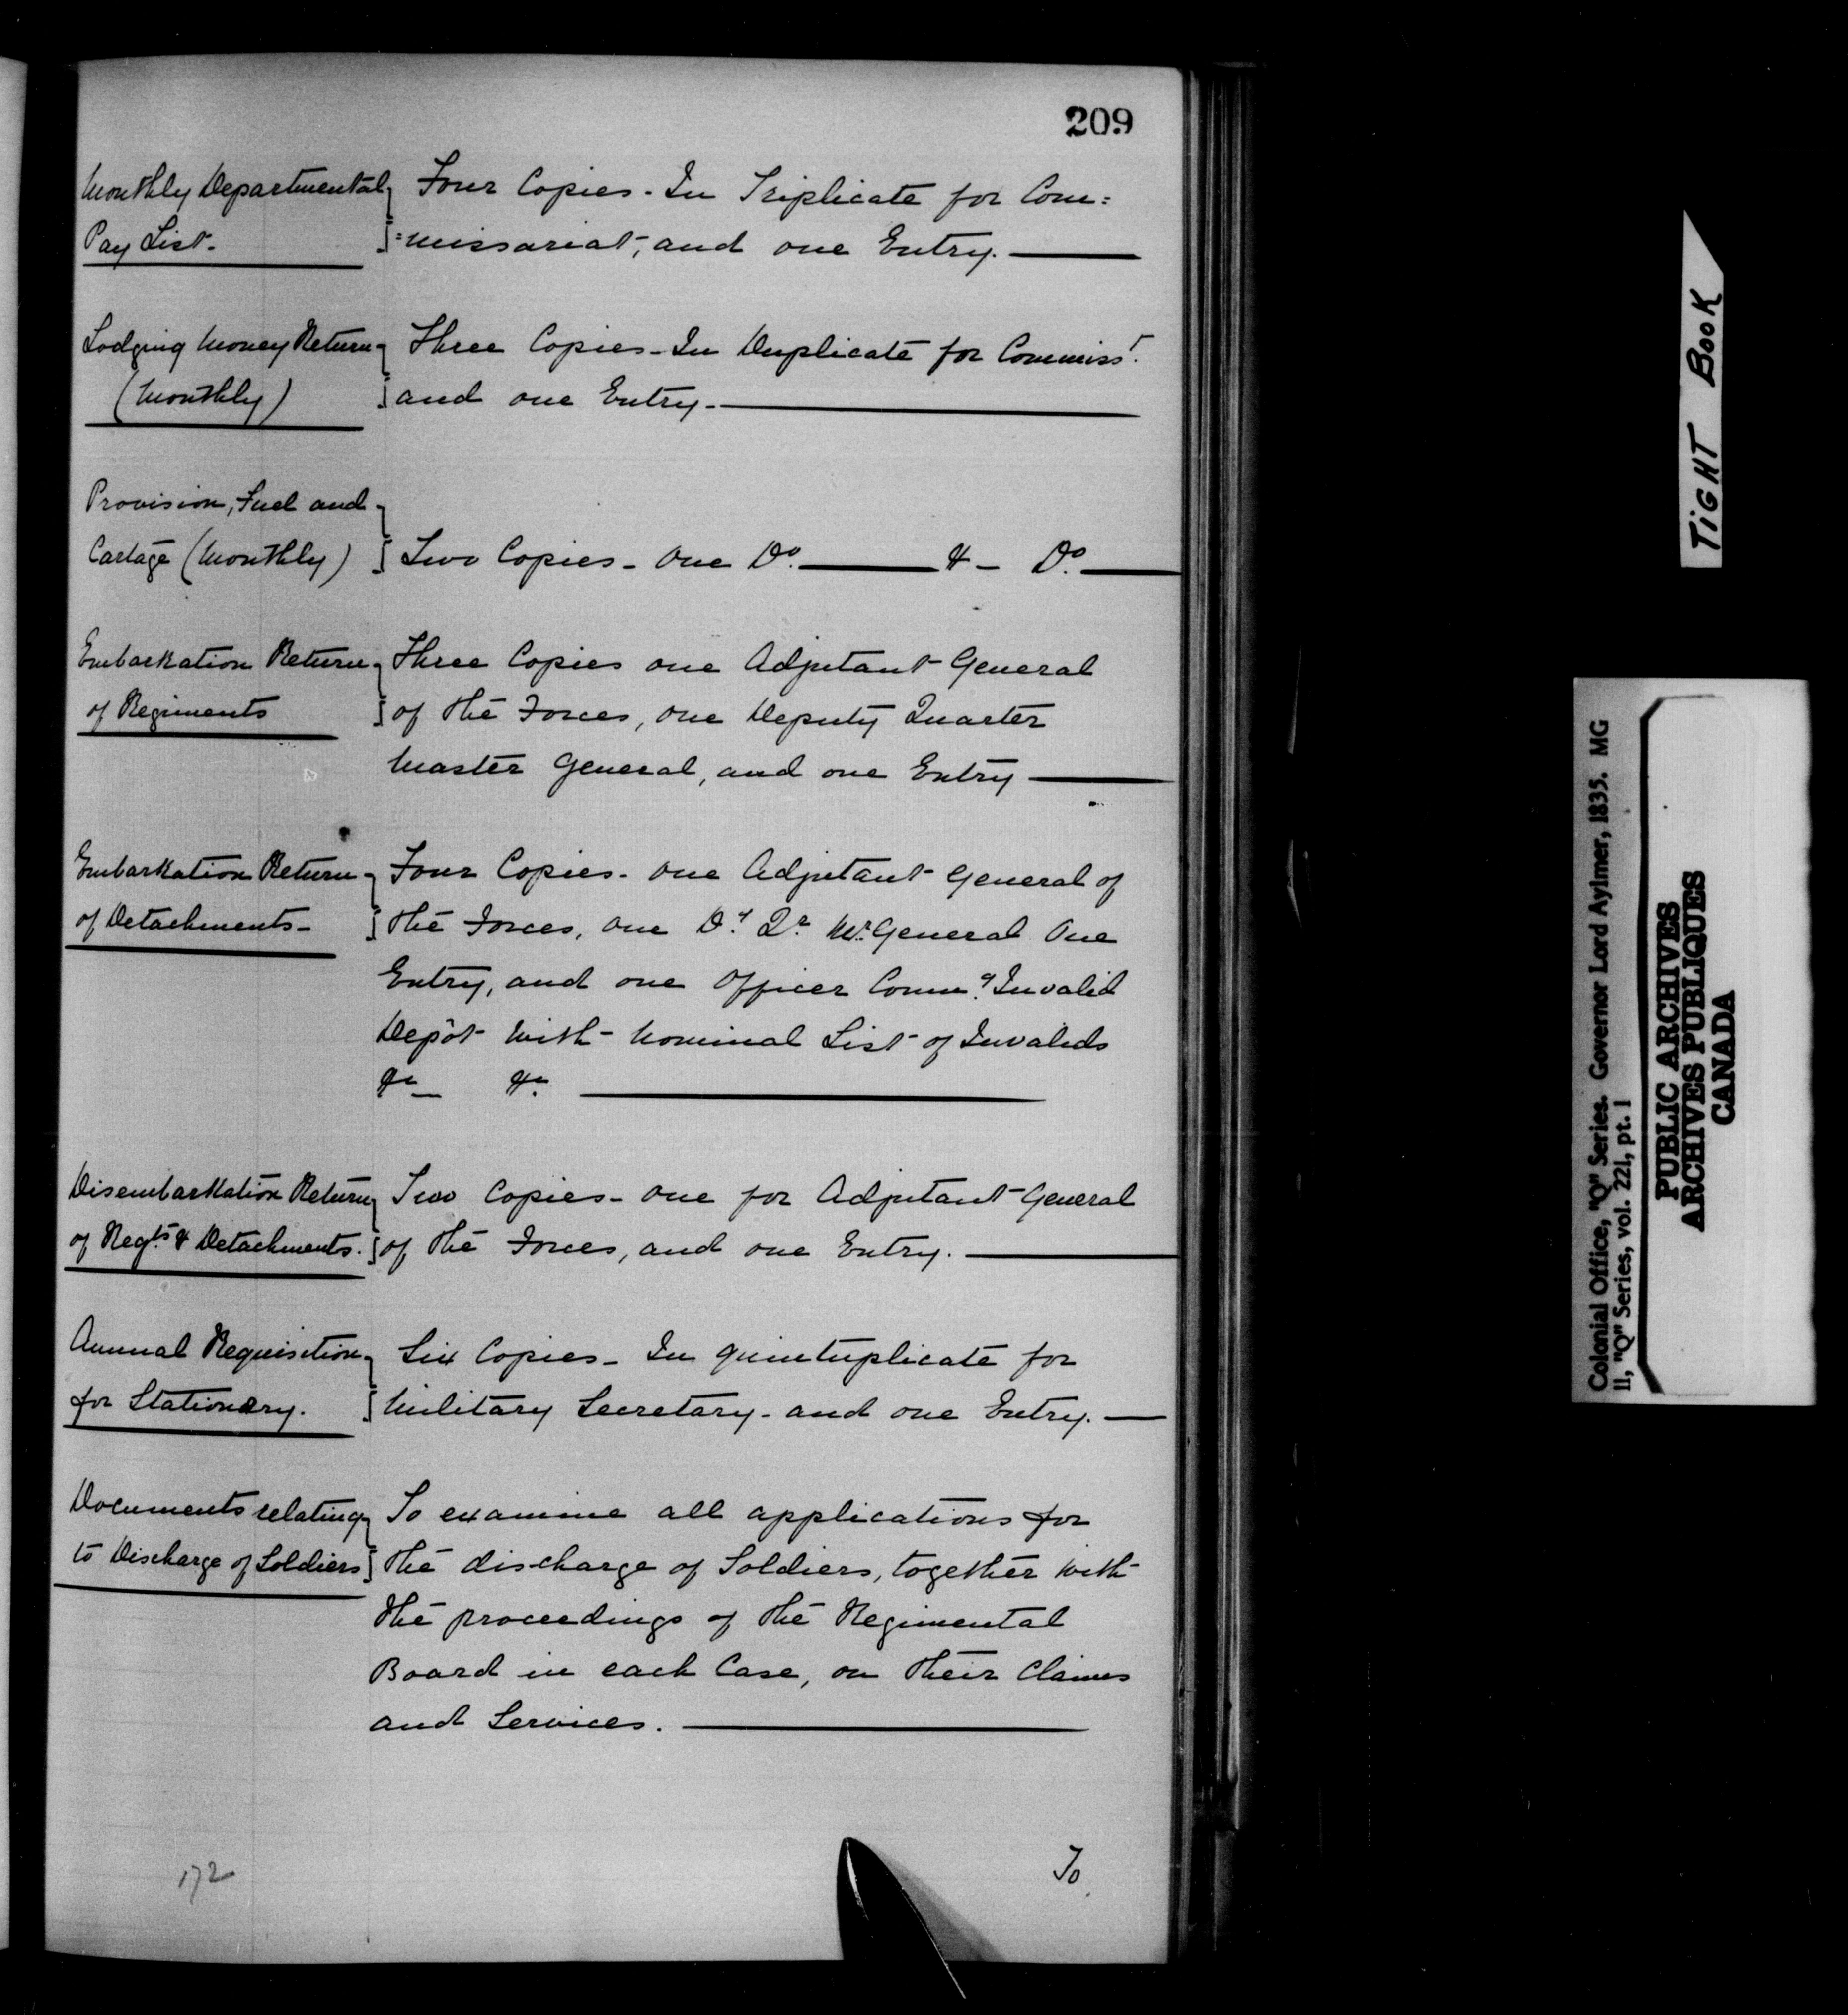 209
Monthly Departmental Four Copies - In Triplicate for Com=
Pay List. =missariat, and one Entry.
Lodging Money Return Three Copies - In Duplicate for Commisst.
(Monthly) and one Entry.
Provision, Fuel and
Cartage (Monthly) Two Copies - One Do. & - Do.
Embarkation Return Three Copies one Adjutant General
of Regiments of the Forces, one Deputy Quarter
Master General, and one Entry
Embarkation Return Four Copies. One Adjutant General of
of Detachments - the Forces, One Dy. Qr. Mr. General One
Entry, and one Officer Commg. Invalid
Depôt with Nominal List of Invalids
&c &c.
Disembarkation Return Two Copies - One for Adjutant General
of Regts. & Detachments. of the Forces, and one Entry.
Annual Requisition Six Copies - In quintuplicate for
for Stationery. Military Secretary - and one Entry.
Documents relating To examine all applications for
to Discharge of Soldiers the discharge of Soldiers, together with
the proceedings of the Regimental
Board in each Case, on their Claims
and Services.
172 To
TIGHT BOOK
Colonial Office, "Q" Series. Governor Lord Aylmer, 1835. MG
11, "Q" Series, vol. 221, pt. 1
PUBLIC ARCHIVES
ARCHIVES PUBLIQUES
CANADA